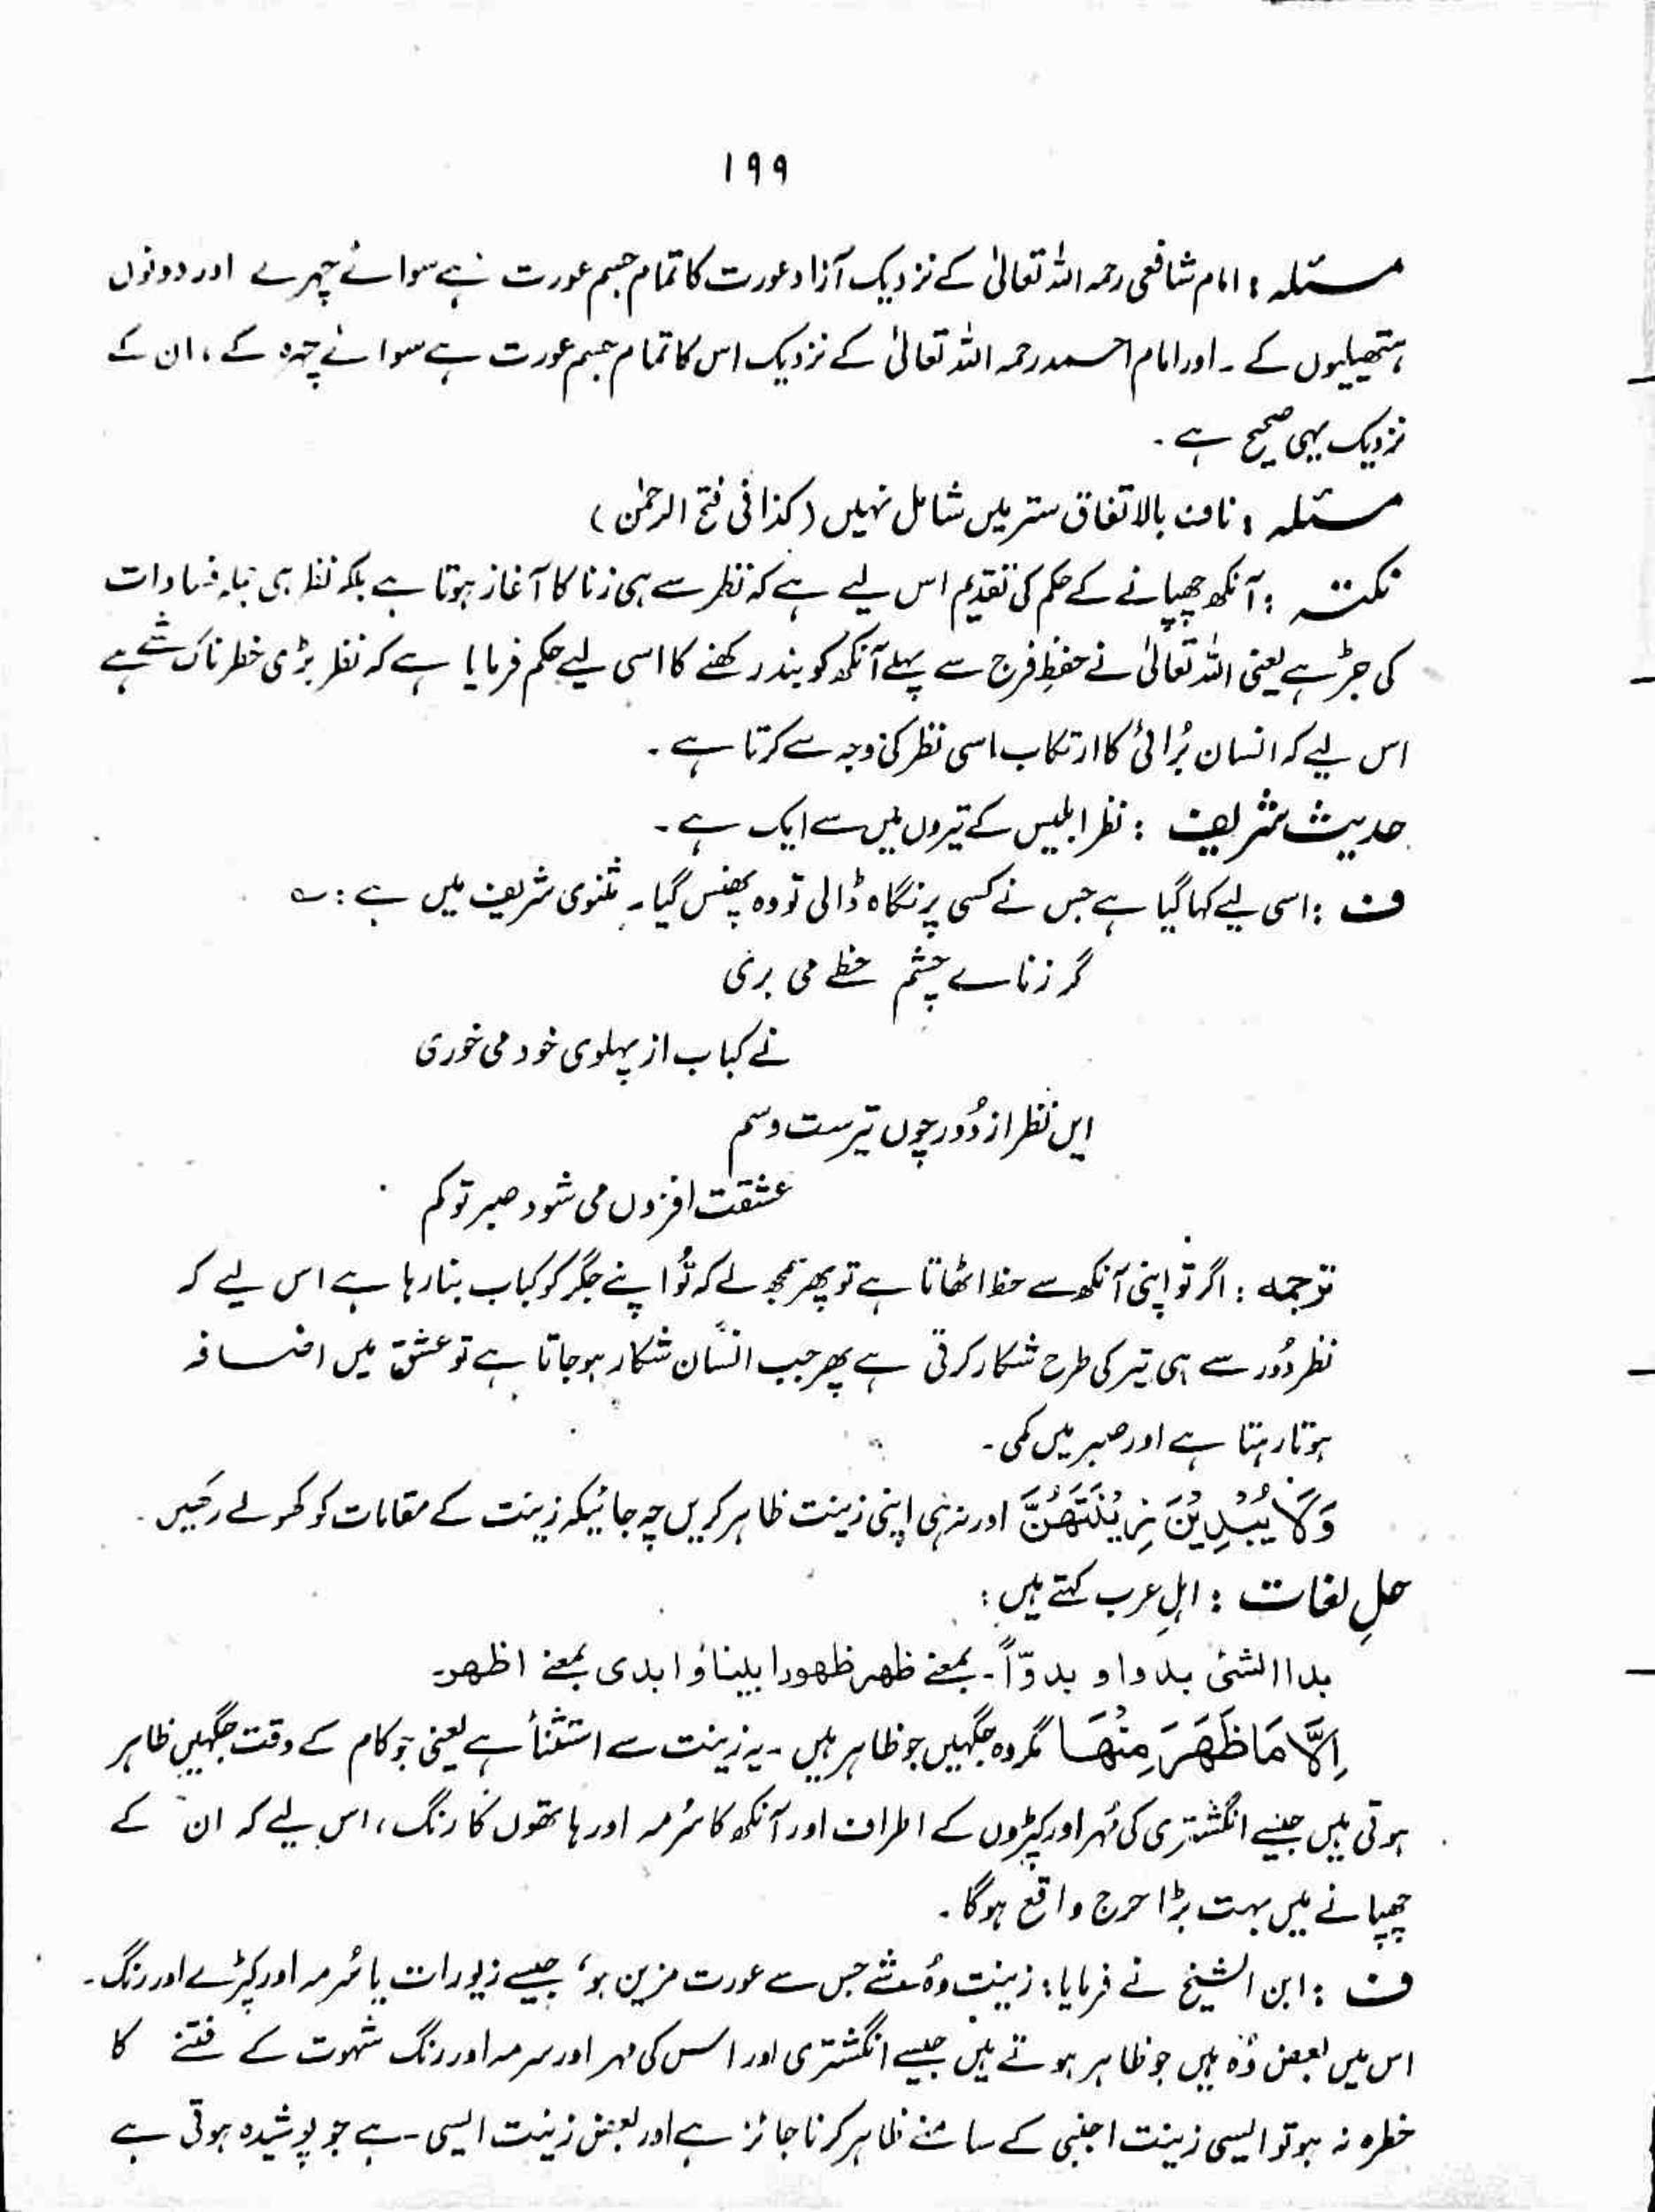 ۱۹۹
مسئلہ : امام شافعی رحمہ اللہ تعالیٰ کے نزدیک آزاد عورت کا تمام جسم عورت ہے سوائے چہرے اور دونوں
ہتھیلیوں کے ۔ اور امام احمد رحمہ اللہ تعالیٰ کے نزدیک اس کا تمام جسم عورت ہے سوائے چہرہ کے ، ان کے
نزدیک یہی صحیح ہے ۔
مسئلہ : ناف بالاتفاق ستر میں شامل نہیں (کذا فی فتح الرحمٰن)
نکتہ : آنکھ چھپانے کے حکم کی تقدیم اس لیے ہے کہ نظر سے ہی زنا کا آغاز ہوتا ہے بلکہ نظر ہی تباہ فسادات
کی جڑ ہے یعنی اللہ تعالیٰ نے حفظِ فرج سے پہلے آنکھ کو بند رکھنے کا اسی لیے حکم فرمایا ہے کہ نظر بڑی خطرناک شے ہے
اس لیے کہ انسان بُرائی کا ارتکاب اسی نظر کی وجہ سے کرتا ہے ۔
حدیث شریف : نظر ابلیس کے تیروں میں سے ایک ہے ۔
ف : اسی لیے کہا گیا ہے جس نے کسی پر نگاہ ڈالی تو وہ پھنس گیا ۔ مثنوی شریف میں ہے : ؎
گر زناے چشم حظے می بری
نے کباب از پہلوی خود می خوری
ایں نظر از دُور چوں تیرست و سم
عشقت افزوں می شود صبر تو کم
ترجمہ : اگر تو اپنی آنکھ سے حظ اٹھاتا ہے تو پھر سمجھ لے کہ تُو اپنے جگر کو کباب بنا رہا ہے اس لیے کہ
نظر دُور سے ہی تیر کی طرح شکار کرتی ہے پھر جب انسان شکار ہو جاتا ہے تو عشق میں اضافہ
ہوتا رہتا ہے اور صبر میں کمی ۔
وَلَا يُبْدِيْنَ زِيْنَتَهُنَّ اور نہ ہی اپنی زینت ظاہر کریں چہ جائیکہ زینت کے مقامات کو کھولے رکھیں ۔
حلِ لغات : اہلِ عرب کہتے ہیں :
بدا الشئ بدوا و بدوّاً ۔ بمعنے ظھر ظھورا بینا و ابدی بمعنے اظھر۔
اِلَّا مَا ظَهَرَ مِنْهَا مگر وہ جگہیں جو ظاہر ہیں ۔ یہ زینت سے استثناء ہے یعنی جو کام کے وقت جگہیں ظاہر
ہوتی ہیں جیسے انگشتری کی مُہر اور کپڑوں کے اطراف اور آنکھ کا سُرمہ اور ہاتھوں کا رنگ ، اس لیے کہ ان کے
چھپانے میں بہت بڑا حرج واقع ہوگا ۔
ف : ابن الشیخ نے فرمایا : زینت وہ شے جس سے عورت مزین ہو ، جیسے زیورات یا سُرمہ اور کپڑے اور رنگ ۔
اس میں بعض وُہ ہیں جو ظاہر ہوتے ہیں جیسے انگشتری اور اس کی مہر اور سرمہ اور رنگ شہوت کے فتنے کا
خطرہ نہ ہو تو ایسی زینت اجنبی کے سامنے ظاہر کرنا جائز ہے اور بعض زینت ایسی ہے جو پوشیدہ ہوتی ہے